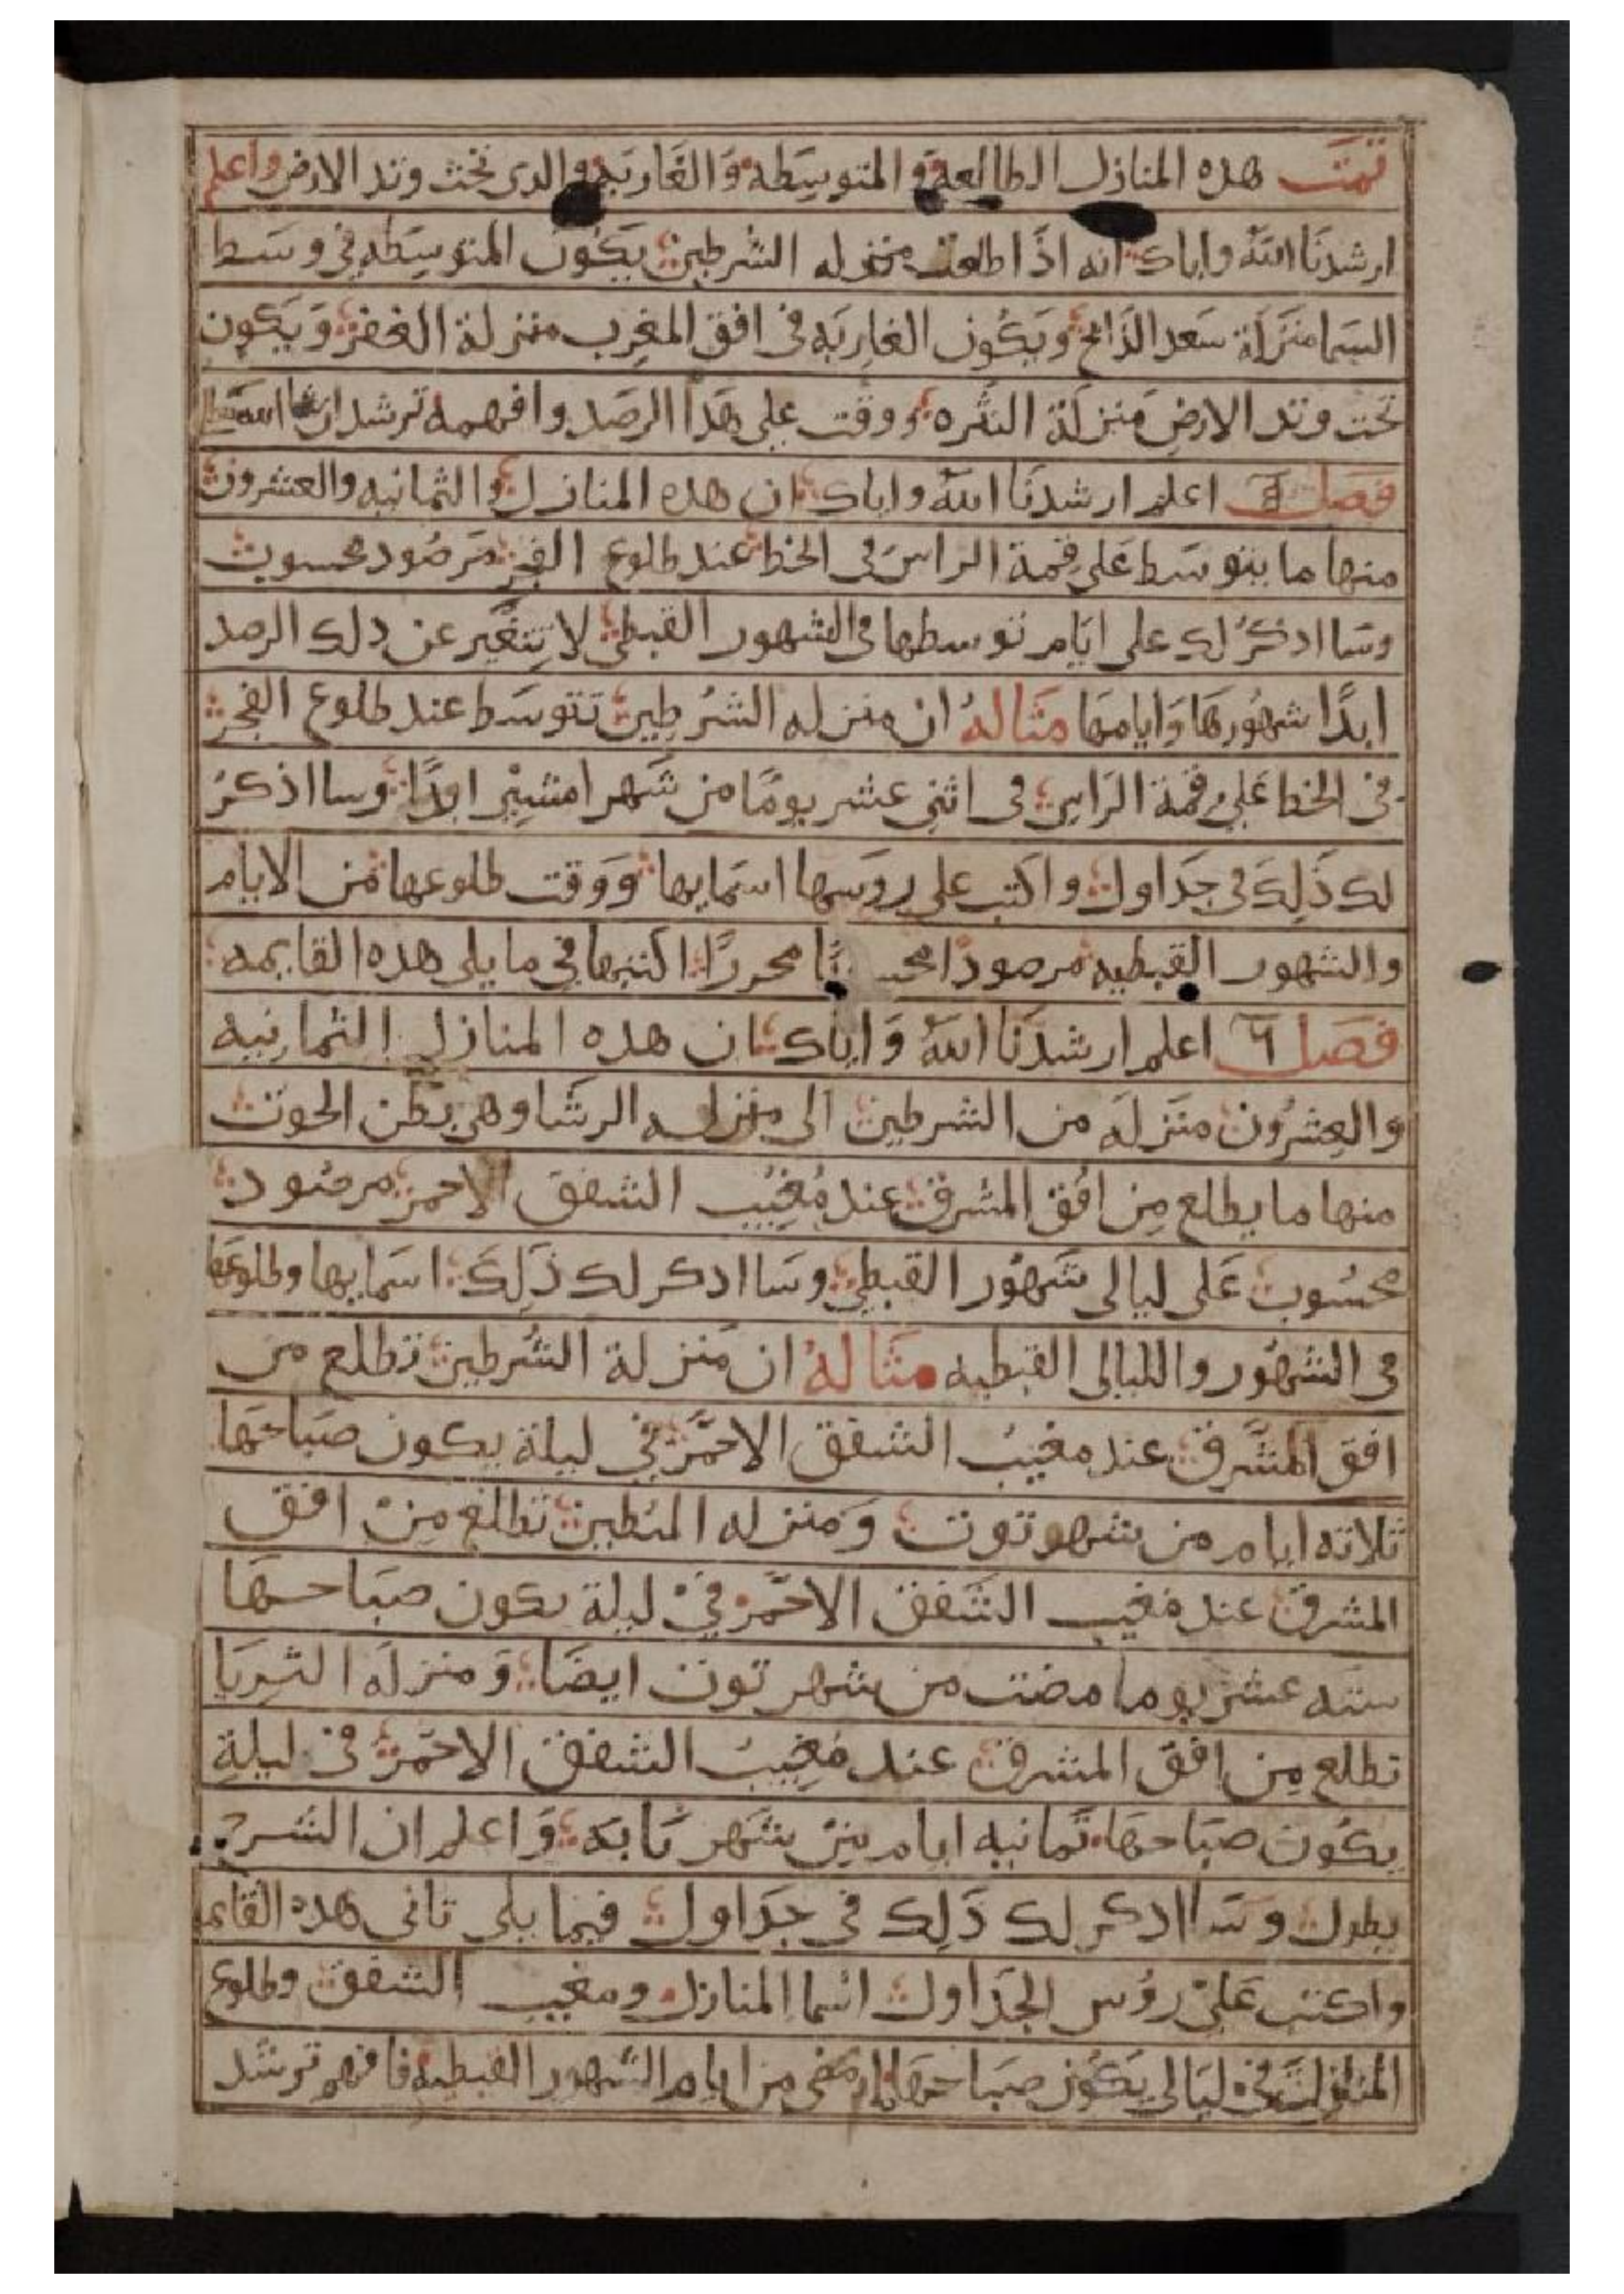 تمت هده المنازل الطالعة والمتوسطه والغاربه والدى تحت وتد الارض واعلم
ارشدنا الله واياك انه اذا طلعت منزله الشرطين يكون المتوسطه في وسط
السما منزلة سعد الذابح ويكون الغاربه فى افق المغرب منزلة الغفر ويكون
تحت وتد الارض منزلة النثره ووقت على هذا الرصد وافهمه ترشد ان شا الله
فصل اعلم ارشدنا الله واياك ان هده المنازل والثمانيه والعشرون
منها ما يتوسط على قمة الراس فى الخط عند طلوع الفجر مرصود محسوب
وسا ادكر لك على ايام توسطها فى الشهور القبطى لا يتغير عن دلك الرصد
ابدًا شهورها وايامها مثاله ان منزله الشرطين تتوسط عند طلوع الفجر
فى الخط على قمة الراس فى اثنى عشر يومًا من شهر امشير ابدًا وسا اذكر
لك ذلك فى جداول واكتب على روسها اسمايها ووقت طلوعها من الايام
والشهور القبطيه مرصودًا محررًا اكتبها في ما يلى هده القايمه
فصل ٦ اعلم ارشدنا الله واياك ان هده المنازل الثمانيه
والعشرون منزله من الشرطين الى منزله الرشا وهى بطن الحوت
منها ما يطلع من افق المشرق عند مغيب الشفق الاحمر مرصود
محسوب على ليالى شهور القبطى وسا ادكر لك ذلك اسمايها وطلوعها
فى الشهور والليالى القبطيه مثاله ان منزلة الشرطين تطلع من
افق المشرق عند مغيب الشفق الاحمر في ليلة يكون صباحها
ثلاثه ايام من شهر توت ومنزله البطين تطلع من افق
المشرق عند مغيب الشفق الاحمر في ليلة يكون صباحها
سته عشر يوما مضت من شهر توت ايضا ومنزله الثريا
تطلع من افق المشرق عند مغيب الشفق الاحمر في ليلة
يكون صباحها ثمانيه ايام من شهر بابه واعلم ان الشرح
يطول وسا ادكر لك ذلك فى جداول فيما يلى تانى هده القايمه
واكتب على رؤس الجداول اسما المنازل ومغيب الشفق وطلوع
المنازل في ليالى يكون صباحها من ايام الشهور القبطيه فافهم ترشد